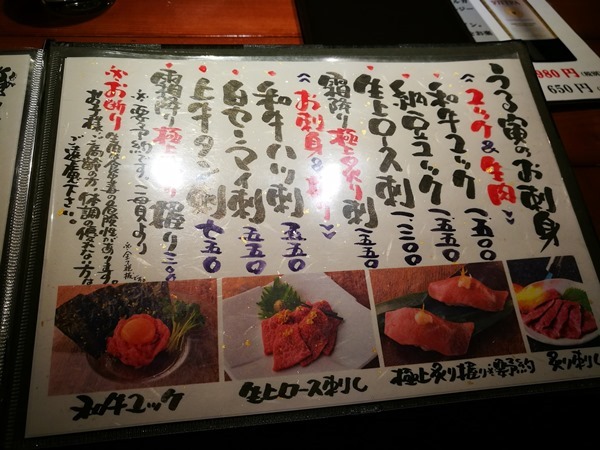 うる寅のお刺身
《ユッケ&生肉》
和牛ユッケ 一五〇〇
納豆ユッケ 一五五〇
生上ロース刺 一二〇〇
霜降り極上炙り刺
《お刺身&握り》
和牛ハツ刺 五五〇
白センマイ刺 五五〇
上牛タン刺 七五〇
霜降り極上炙り握り 三〇〇
※要予約です。二貫より
※お断り
生肉は食中毒の危険性があります。
お子様、高齢の方、体調の優れない方は
ご遠慮下さい。
和牛ユッケ
生上ロース刺し
極上炙り握り※要予約
炙り刺し
980円
650円